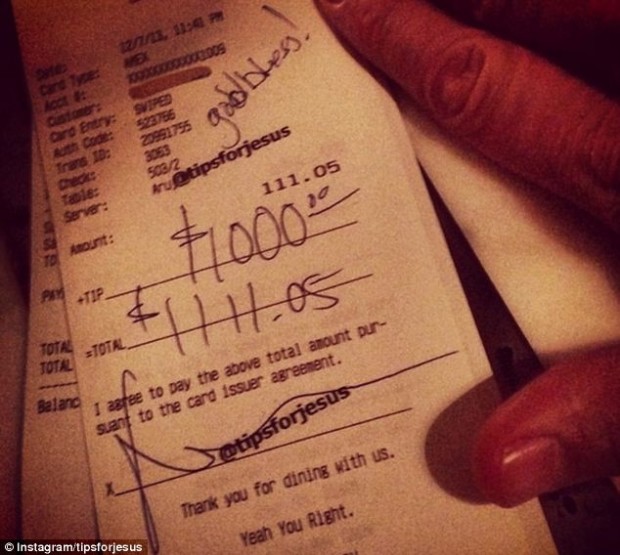 Date: 12/7/13, 11:48 PM
Card Type: AMEX
Acct #: XXXXXXXXXXX1009
Customer:
Card Entry: SWIPED
Auth Code: 523766
Trans ID: 20991755
Check: 3063
Table: 503/2
Server:
godbless!
@tipsforjesus
Amount: 111.05
+TIP $1000.00
=TOTAL $1111.05
I agree to pay the above total amount pur-
suant to the card issuer agreement.
X
@tipsforjesus
Thank you for dining with us.
Yeah You Right.
PAY
TOTAL
TOTAL
Balanc
© Instagram/tipsforjesus